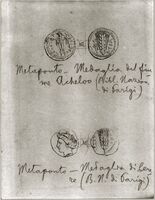 Metaponto – Medaglia del fiu-
me Acheloo (Bibl. Nazion.
di Parigi)
Metaponto – Medaglia di Cere
re (B. N. di Parigi)